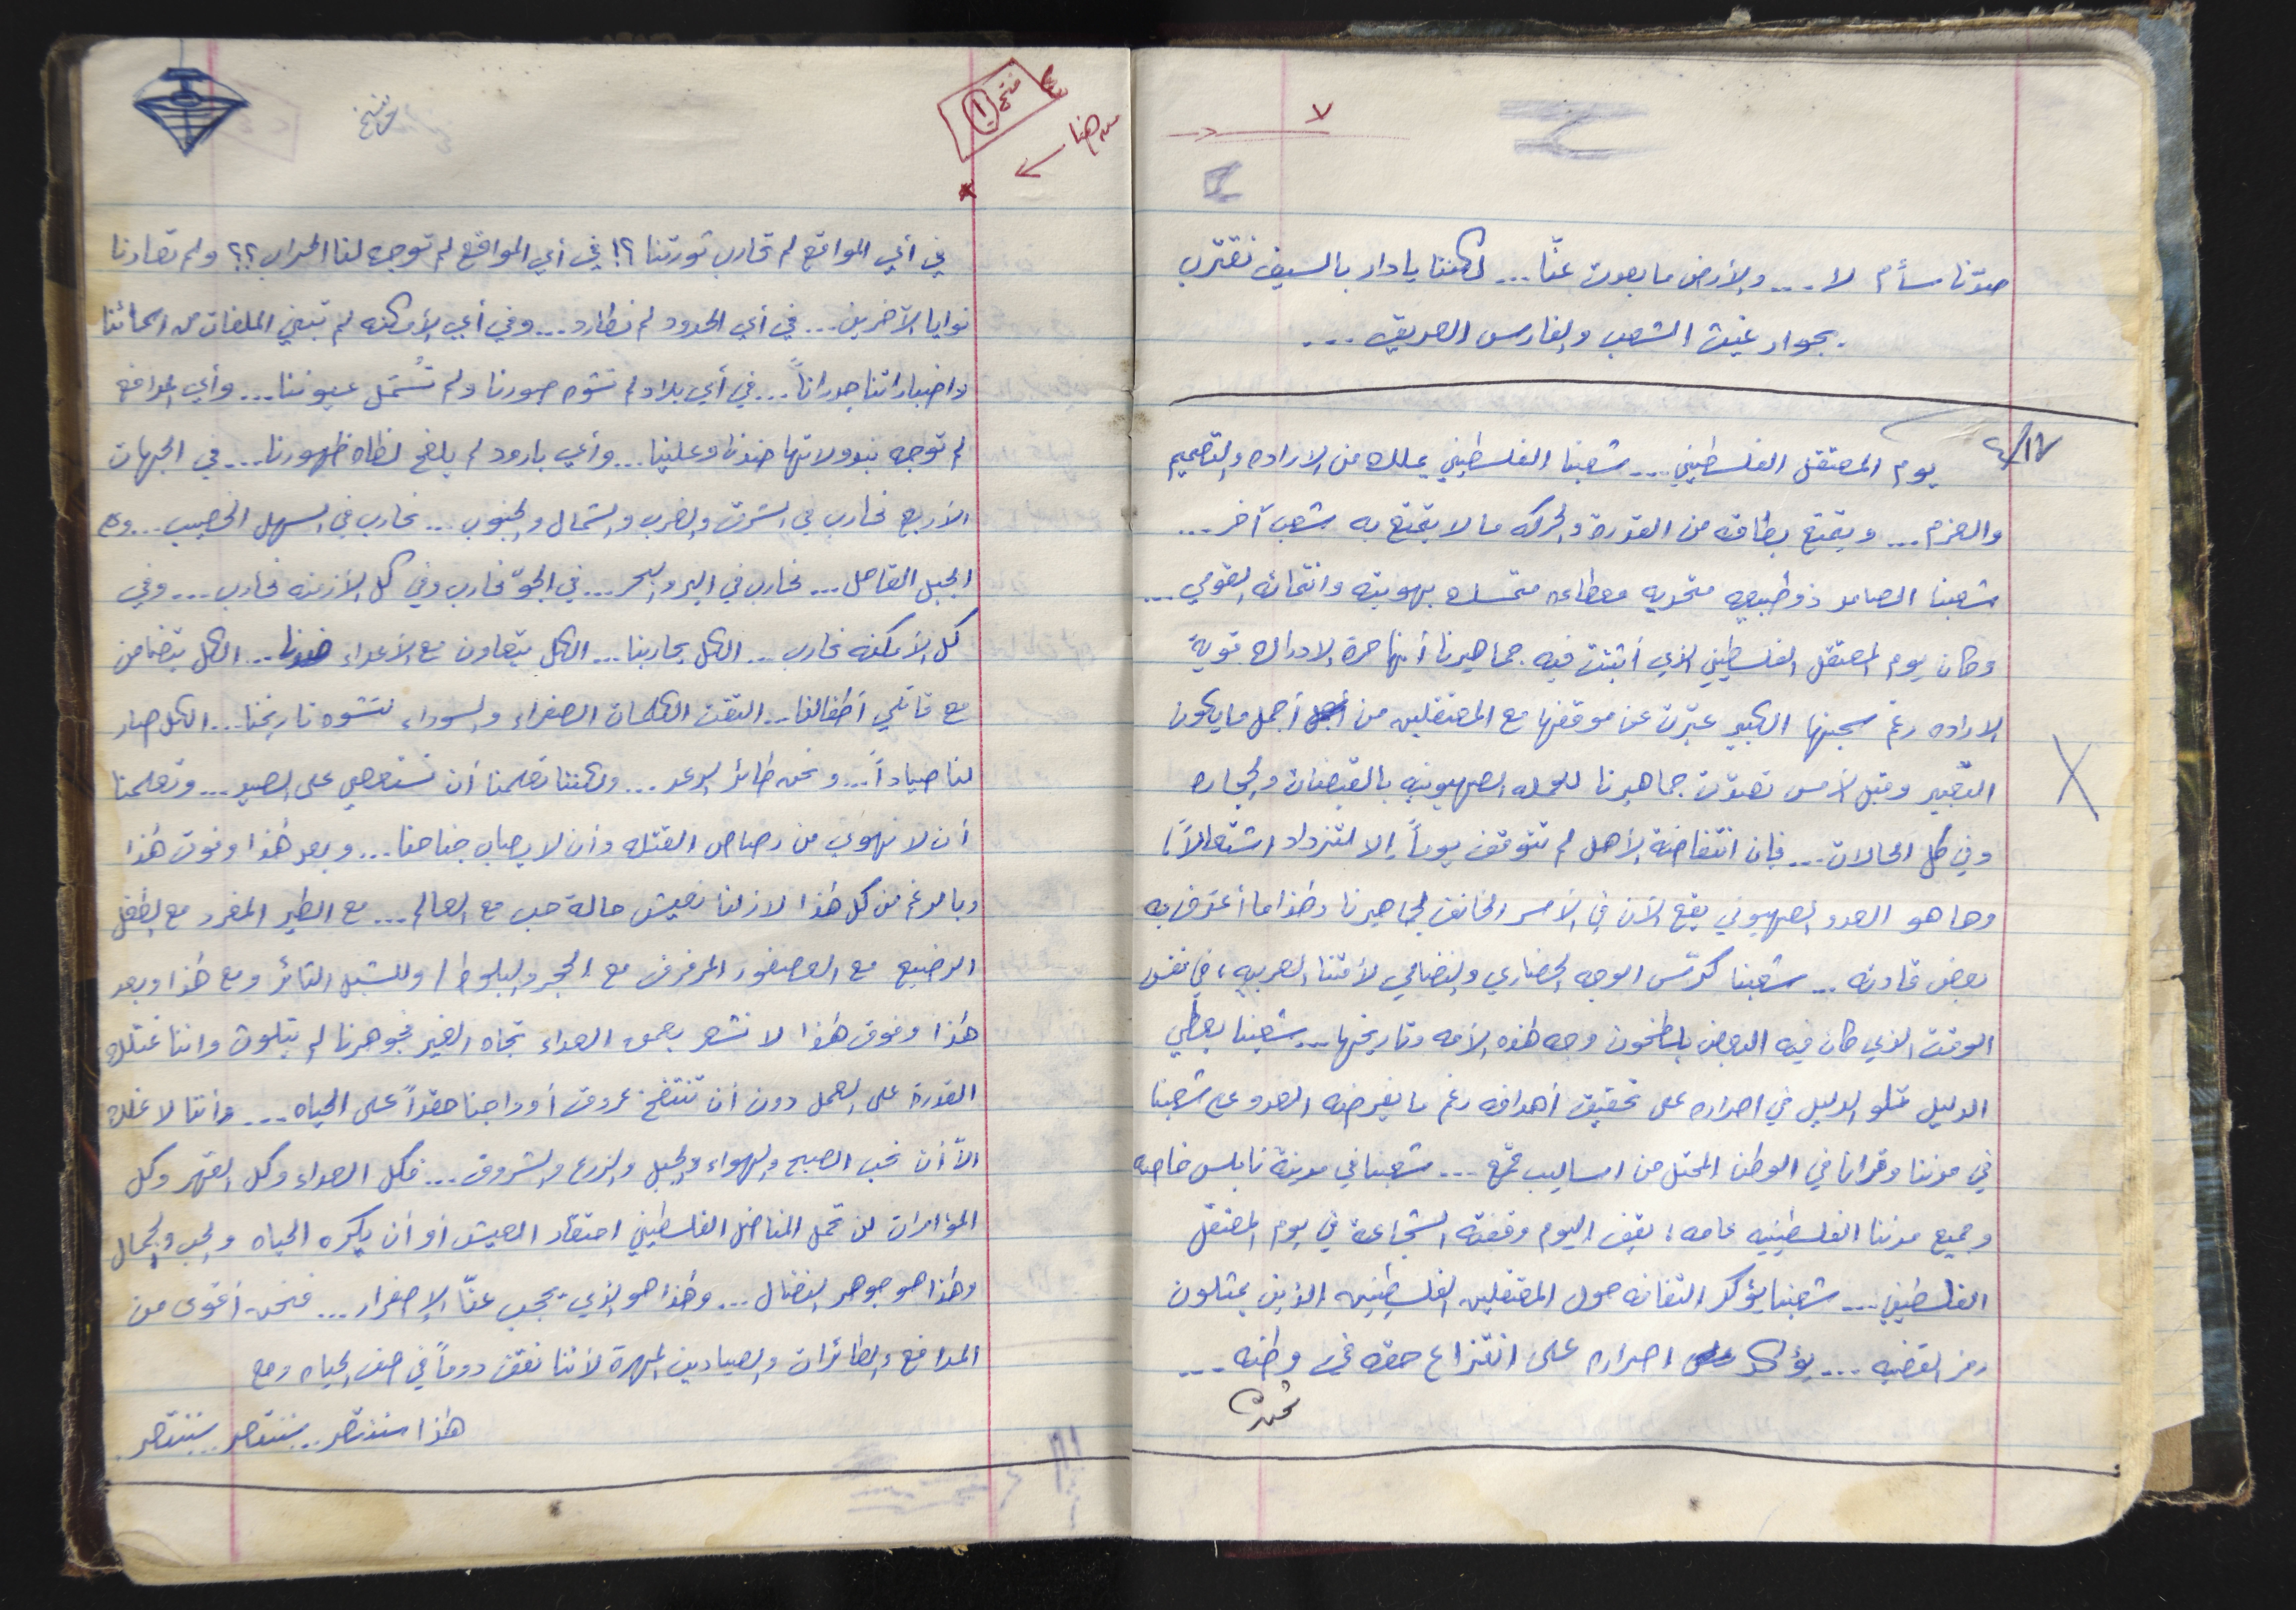 ٧
صوتنا سأم لا ... والأرض ما بعدت عنّا ... لكننا يا دار بالسيف نقترب
بجوار غيث الشعب والفارس العريق ...
٤/١٧
يوم المعتقل الفلسطيني ... شعبنا الفلسطيني يملك من الاراده والتصميم
والعزم ... ويتمتع بطاقه من القدرة والحركه ما لا يتمتع به شعب آخر ...
شعبنا الصامد ذو طبيعه متحديه معطاءه متمسك بهويته وانتمائه القومي ...
وكان يوم المعتقل الفلسطيني الذي أثبتت فيه جماهيرنا أنها حرة الادراك قويةُ
الاراده رغم سجنها الكبير عبّرت عن موقفها مع المعتقلين من أجمل ما يكون
التعبير وقبل الأمس تصدّت جماهيرنا للحمله الصهيونيه بالقبضات والحجاره
وفي كل الحالات ... فإن انتفاضة الأهل لم تتوقف يوماً إلا لتزداد اشتعالاً،
وها هو العدو الصهيوني يقع الآن في الأسر الخانق لجماهيرنا وهذا ما أعترف به
بعض قادته ... شعبنا كرّس الوجه الحضاري والنضالي لأمتنا العربيه، في نفس
الوقت الذي كان فيه البعض يلطخون وجه هذه الأمه وتاريخها ... شعبنا يعطي
الدليل تلو الدليل في اصراره على تحقيق أهدافه رغم ما يفرضه العدو على شعبنا
في مدننا وقرانا في الوطن المحتل من اساليب قمع ... شعبنا في مدينة نابلس خاصه
وجميع مدننا الفلسطينيه عامه، يقف اليوم وقفته الشجاعة في يوم المعتقل
الفلسطيني ... شعبنا يؤكد التفافه حول المعتقلين الفلسطينين الذين يمثلون
رمز القضيه ... يؤكد اصراره على انتزاع حقه في وطنه ...
فتح ١
من هنا
في أي المواقع لم تحارب ثورتنا؟! في أي المواقع لم توجه لنا الحراب؟؟ ولم تصادرنا
نوايا الآخرين ... في أي الحدود لم نطارد ... وفي أي الأمكنه لم تبنى الملفات من اسمائنا
واضباراتنا جدراناً ... في أي بلاد لم تشوه صورنا ولم تُسمَل عيوننا ... وأي المدافع
لم توجه نيرانها ضدنا وعلينا ... وأي بارود لم يلفح لظاه ظهورنا ... في الجبهات
الأربع نحارب في الشرق والغرب والشمال والجنوب ... نحارب في السهل الخصيب ... وفي
الجبل القاحل ... نحارب في البر والبحر ... في الجوّ نحارب وفي كل الأزمنه نحارب ... وفي
كل الأمكنه نحارب ... الكل يحاربنا ... الكل يتعاون مع الأعداء ضدنا ... الكل يتضامن
مع قاتلي أطفالنا ... التقت الكلمات الصفراء والسوداء لتشوه تاريخنا ... الكل صار
لنا صياداً ... ونحن طائر الرعد ... ولكننا تعلمنا أن نستعصي على الصيد ... وتعلمنا
أن لا نهوي من رصاص القتله وأن لا يصاب جناحنا ... وبعد هذا وفوق هذا
وبالرغم من كل هذا لازلنا نعيش حالة حب مع العالم ... مع الطير المغرد مع الطفل
الرضيع مع العصفور المرفرف مع الحجر والبلوط / وللشبل الثائر ومع هذا وبعد
هذا وفوق هذا لا نشعر بعمق العداء تجاه الغير فجوهرنا لم يتلوث واننا نمتلك
القدرة على العمل دون أن تنتفخ عروق أوداجنا حقداً على الحياه ... وأننا لا نملك
الاّ أن نحب الصبح والهواء والجبل والزرع والشروق ... فكل العداء وكل القهر وكل
المؤامرات لن تحمل المناضل الفلسطيني احتقار العيش أو أن يكره الحياه والحب والجمال
وهذا هو جوهر النضال ... وهذا هو الذي يحجب عنّا الإصفرار ... فنحن أقوى من
المدافع والطائرات والصيادين المهرة لأننا نقف دوماً في صف الحياه ومع
هذا سننتصر .. سننتصر .. سننتصر